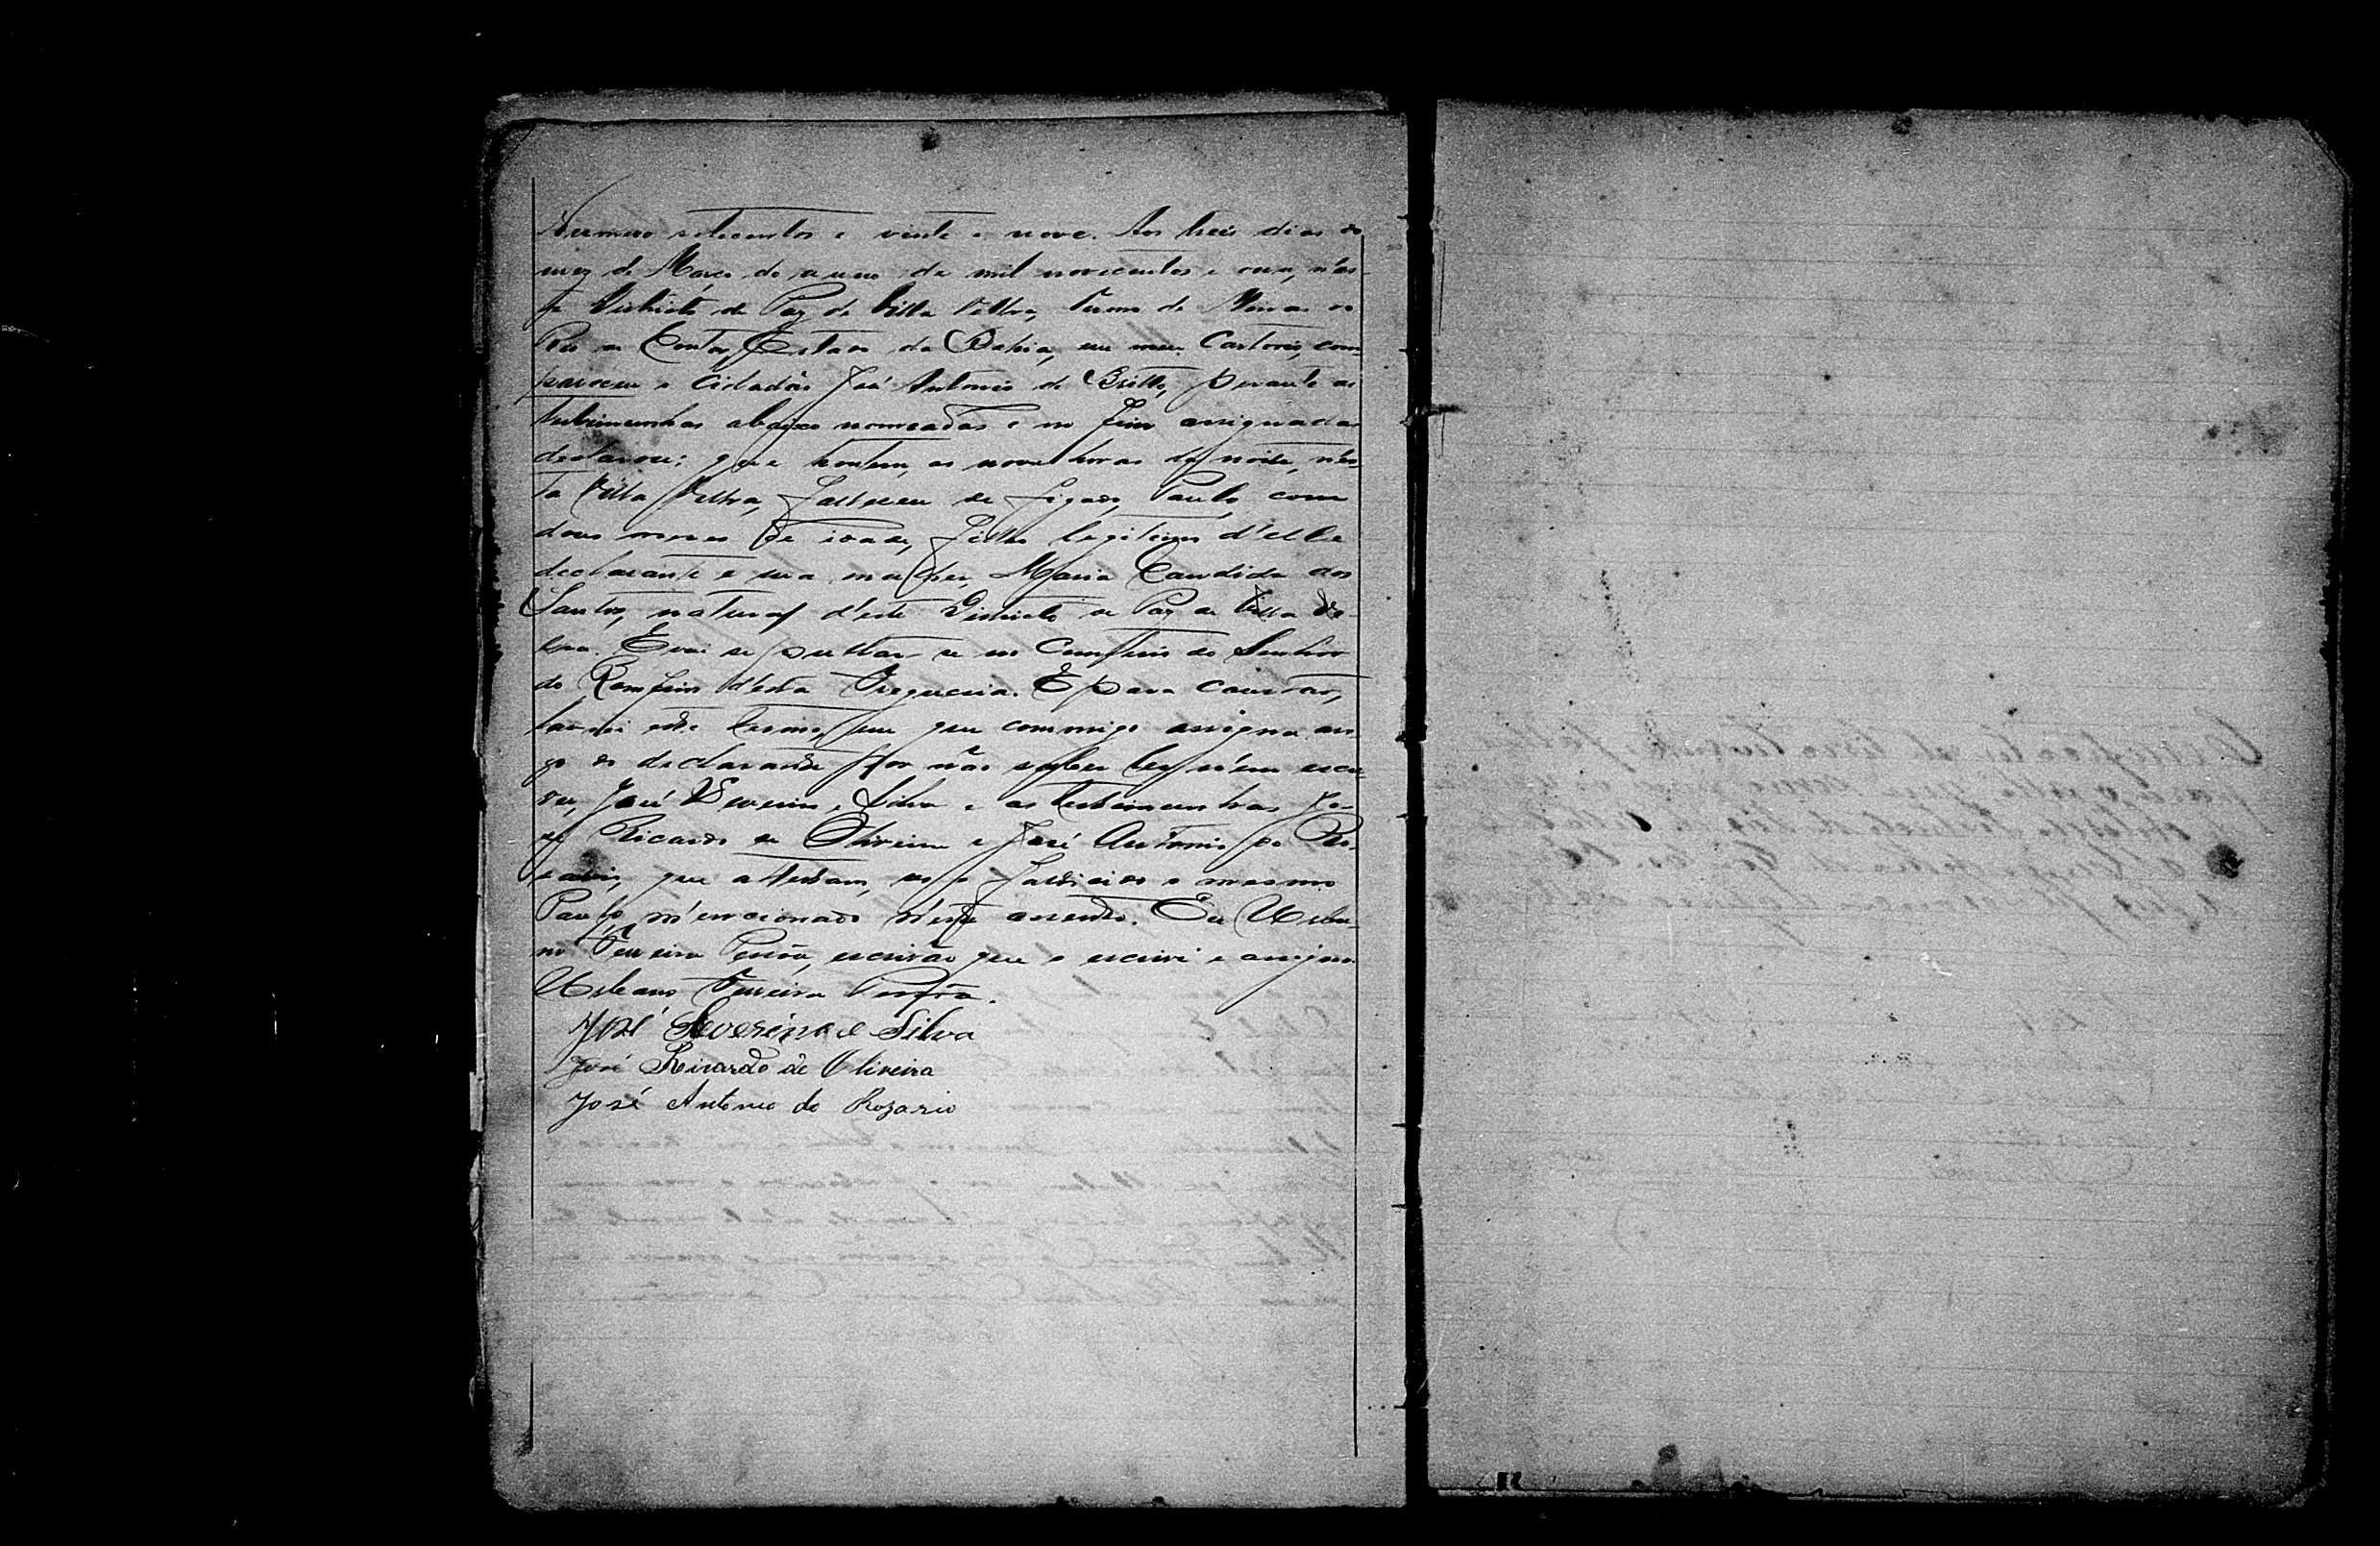 Numero setecentos e vinte e nove. Aos treis dias do
mez de Março do anno de mil novecentos e um, n'es-
te Districto de Paz de Villa Velha, Termo de Minas do
Rio de Contas, Estado da Bahia, em meu Cartorio, com-
pareceu o Cidadão José Antonio de Britto, perante as
testimunhas abaixo nomeadas e no fim assignadas
declarou: que hontem, as nove horas da noite, n'es-
ta Villa Velha, falleceu de figado, Paulo, com
dous mezes de idade, filho legitimo d'elle
declarante e sua mulher, Maria Candida dos
Santos, natural d'este Districto de Paz de Villa Ve-
lha. E vai se pultar-se no Cemiterio do Senhor
do Bomfim d'esta Freguezia. E para constar,
lavrei este termo, em que commigo assigna arro
go do declarante por não saber ler n'em escre
ver, José Severino e Silva e as testimunhas Jo-
sé Ricardo de Oliveira e José Antonio do Ro-
zario, que attestam, ser o fallecido o mesmo
Paulo, m'encionado n'este assento. Eu Urba-
no Ferreira Pessôa, escrivão que o escrevi e assigno
Urbano Ferreira Pessôa.
José Severino e Silva
José Ricardo de Oliveira
José Antonio do Rozario